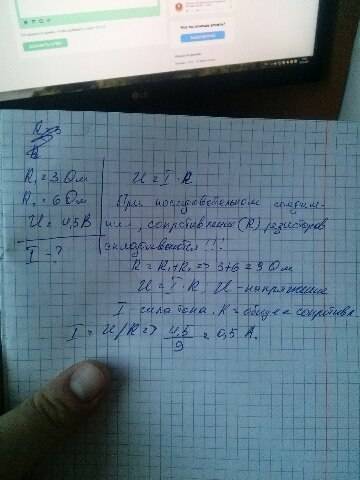 R₁ = 3 Ом
R₂ = 6 Ом
U = 4,5 В
I - ?
U = I · R
При последовательном соедине-
нии, сопротивления (R) резисторов
складываются !!:
R = R₁ + R₂ => 3+6 = 9 Ом
U = I · R, U - напряжение
I сила тока. R = общее сопротивл.
I = U/R => 4,5/9 = 0,5 А.